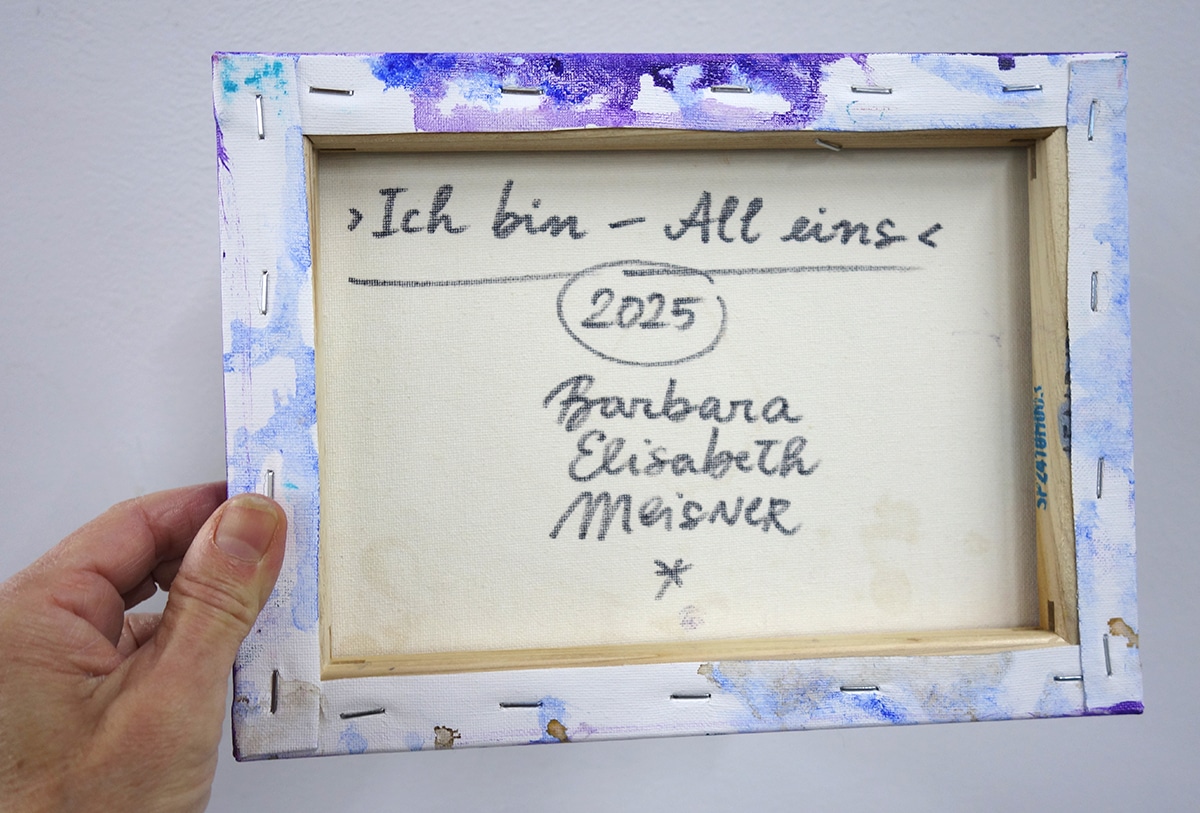 ›Ich bin – All eins‹
2025
Barbara
Elisabeth
Meisner
*